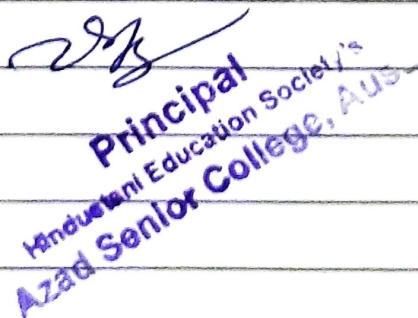 Principal
Hindustani Education Society's
Azad Senior College,